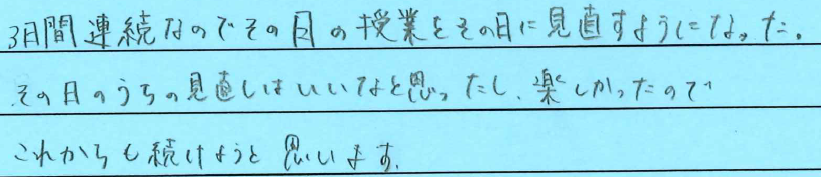 3日間連続なのでその日の授業をその日に見直すようになった。
その日のうちの見直しはいいなと思ったし、楽しかったので
これからも続けようと思います.